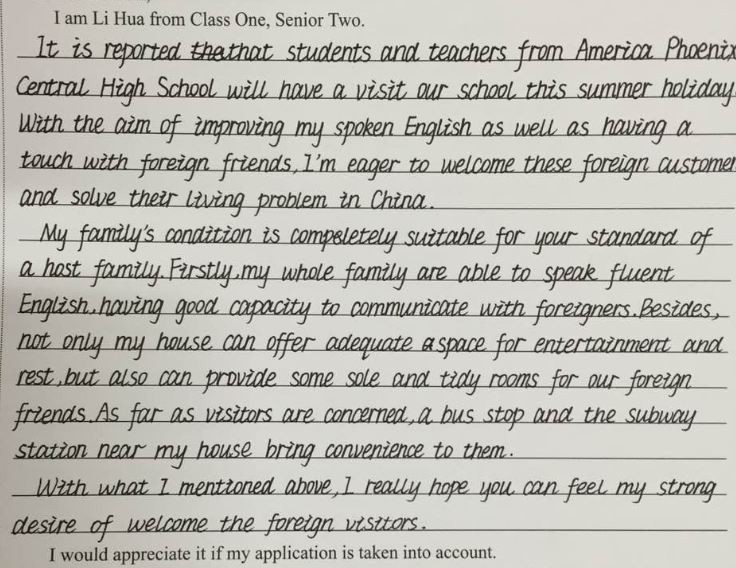 I am Li Hua from Class One, Senior Two.
It is reported thathat students and teachers from America Phoenix
Central High School will have a visit our school this summer holiday.
With the aim of improving my spoken English as well as having a
touch with foreign friends, I'm eager to welcome these foreign customer
and solve their living problem in China.
My family's condition is completely suitable for your standard of
a host family. Firstly, my whole family are able to speak fluent
English, having good capacity to communicate with foreigners. Besides,
not only my house can offer adequate space for entertainment and
rest, but also can provide some sole and tidy rooms for our foreign
friends. As far as visitors are concerned, a bus stop and the subway
station near my house bring convenience to them.
With what I mentioned above, I really hope you can feel my strong
desire of welcome the foreign visitors.
I would appreciate it if my application is taken into account.